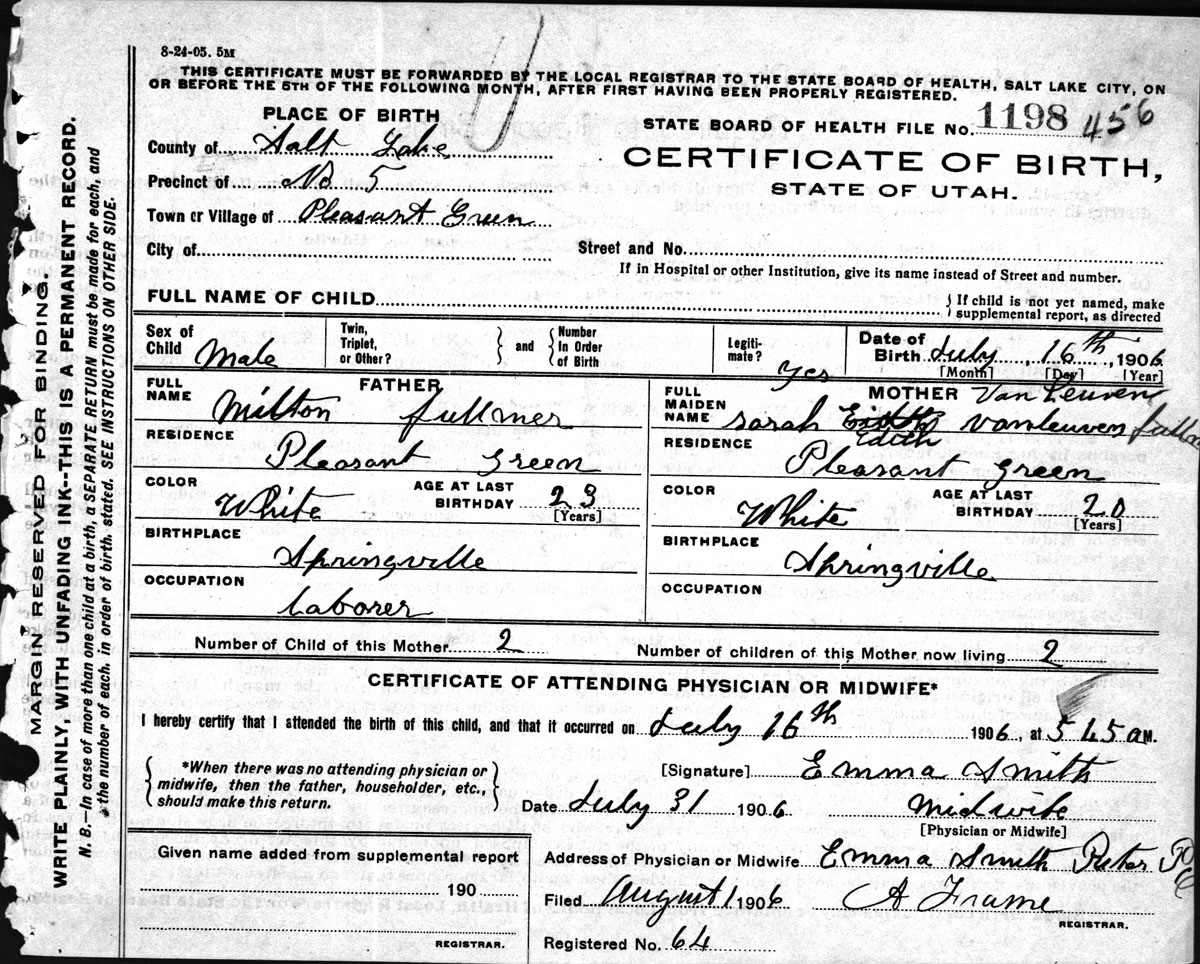 8-24-05. 5M
THIS CERTIFICATE MUST BE FORWARDED BY THE LOCAL REGISTRAR TO THE STATE BOARD OF HEALTH, SALT LAKE CITY, ON
OR BEFORE THE 5TH OF THE FOLLOWING MONTH, AFTER FIRST HAVING BEEN PROPERLY REGISTERED.
PLACE OF BIRTH
STATE BOARD OF HEALTH FILE No. 1198 456
County of Salt Lake
CERTIFICATE OF BIRTH,
STATE OF UTAH.
Precinct of No 5
Town or Village of Pleasant Green
City of
Street and No.
If in Hospital or other Institution, give its name instead of Street and number.
FULL NAME OF CHILD
{ If child is not yet named, make
supplemental report, as directed
Sex of Child Male
Twin, Triplet, or Other? } and { Number In Order of Birth
Legitimate? Yes
Date of Birth July 16th, 1906
[Month] [Day] [Year]
FATHER
FULL NAME Milton fullmer
RESIDENCE
Pleasant Green
COLOR White
AGE AT LAST BIRTHDAY 23
[Years]
BIRTHPLACE
Springville
OCCUPATION
laborer
MOTHER Van Leuven
FULL MAIDEN NAME Sarah Edith vanleuven
RESIDENCE
Pleasant Green
COLOR White
AGE AT LAST BIRTHDAY 20
[Years]
BIRTHPLACE
Springville
OCCUPATION
Number of Child of this Mother 2
Number of children of this Mother now living 2
CERTIFICATE OF ATTENDING PHYSICIAN OR MIDWIFE*
I hereby certify that I attended the birth of this child, and that it occurred on July 16th 1906, at 5 45 a M.
{ *When there was no attending physician or
midwife, then the father, householder, etc.,
should make this return. }
[Signature] Emma Smith
Date July 31 1906
Midwife
[Physician or Midwife]
Given name added from supplemental report
190
REGISTRAR.
Address of Physician or Midwife Emma Smith
Filed August 1 1906
A Frame
REGISTRAR.
Registered No. 64
MARGIN RESERVED FOR BINDING.
WRITE PLAINLY, WITH UNFADING INK--THIS IS A PERMANENT RECORD.
N. B.—In case of more than one child at a birth, a SEPARATE RETURN must be made for each, and
the number of each, in order of birth, stated. SEE INSTRUCTIONS ON OTHER SIDE.